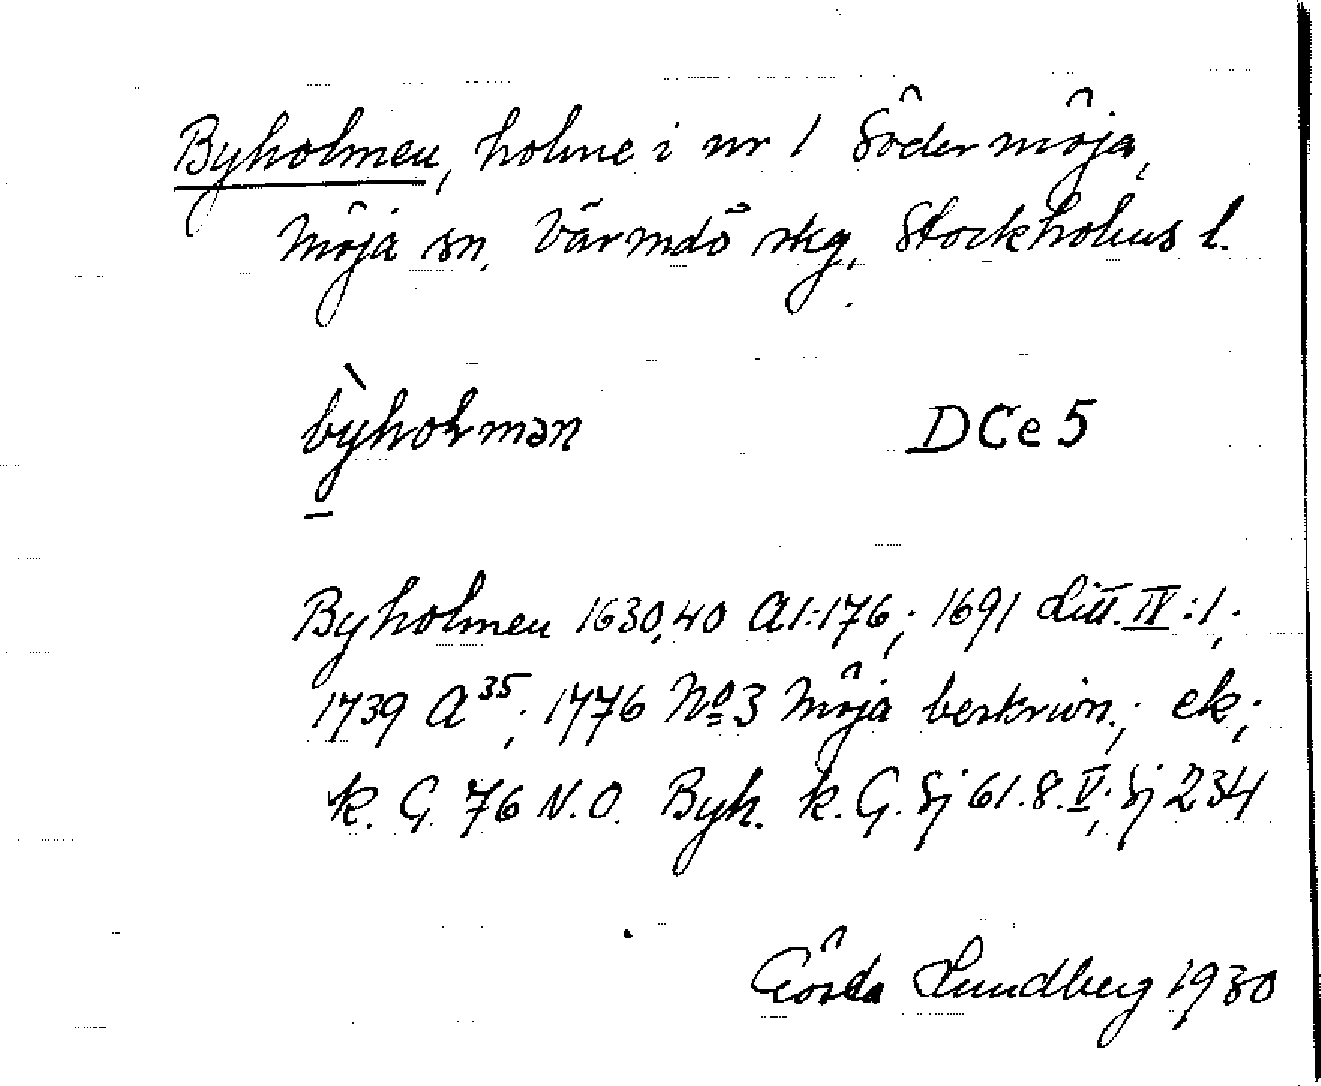 Byholmen, holme i nr 1 Södermöja,
Möja sn, Värmdö skg, Stockholms l.
bỳholmən DCe 5
Byholmen 1630,40 A1:176; 1691 Litt. IV:1;
1739 A 35; 1776 No 3 Möja beskrivn.; ek;
k. G. 76 N.O. Byh. k. G. Sj 61.8.V; Sj 234
Gösta Lundberg 1930